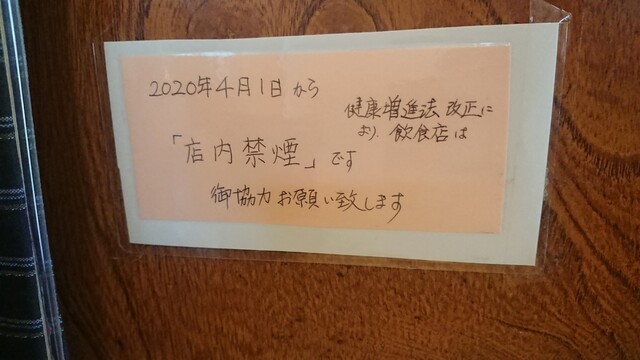 2020年4月1日から
健康増進法改正に
より、飲食店は
「店内禁煙」です
御協力お願い致します